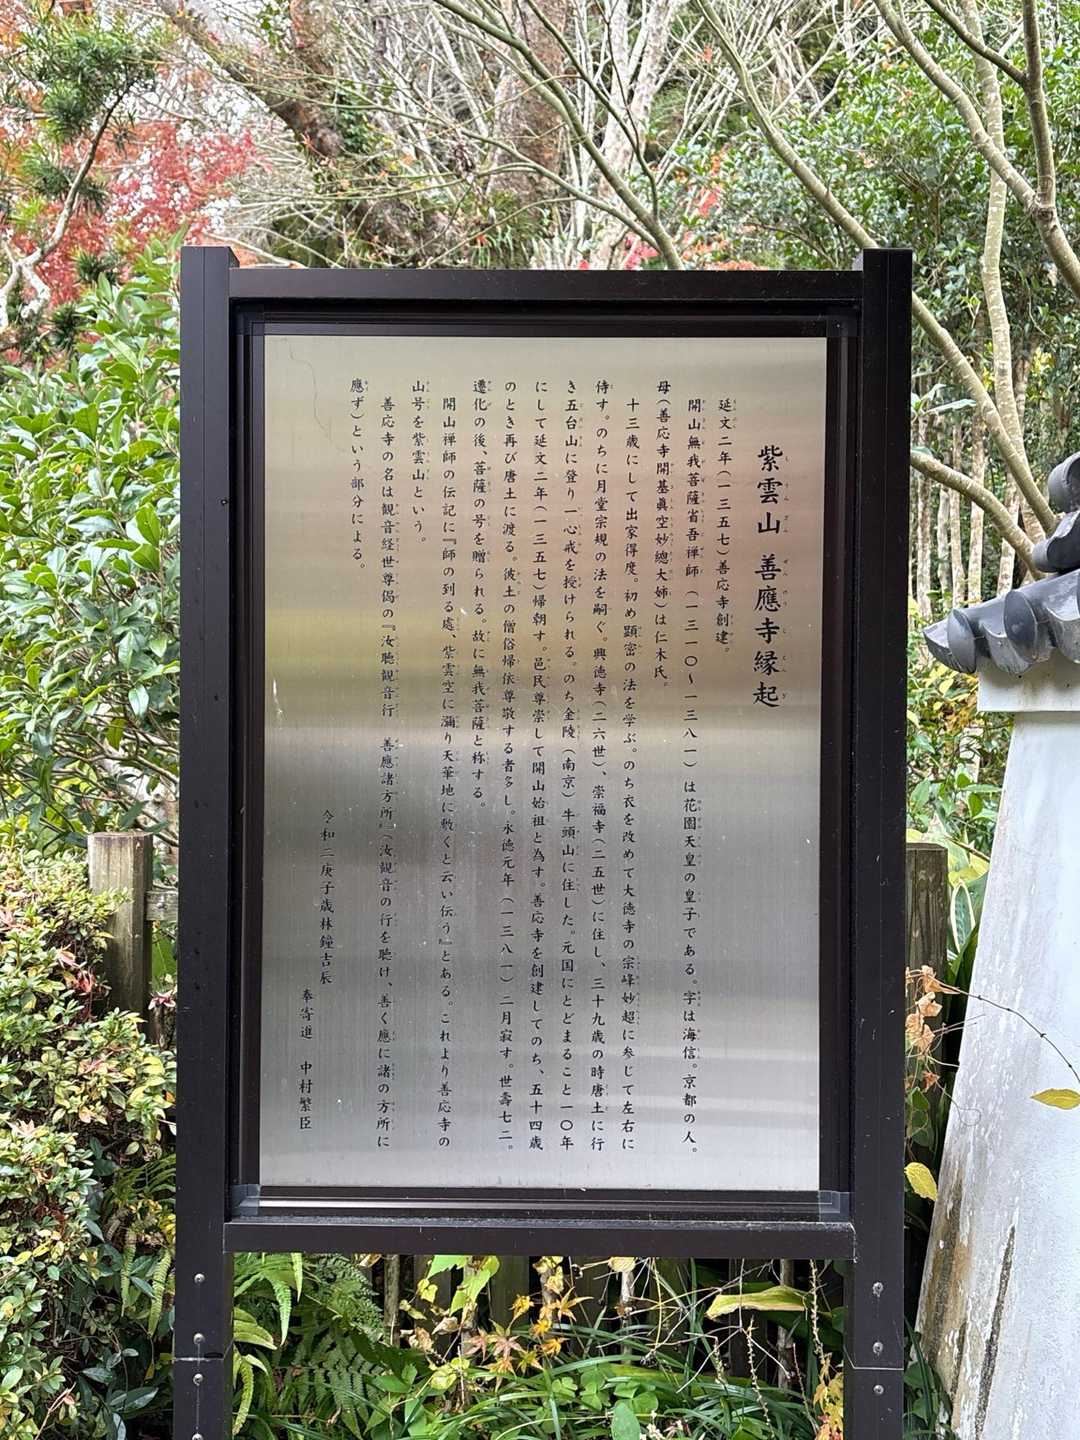 紫雲山 善應寺縁起
延文二年(一三五七)善応寺創建。
開山無我菩薩省吾禅師(一三一〇～一三八一)は花園天皇の皇子である。字は海信。京都の人。
母(善応寺開基眞空妙總大姉)は仁木氏。
十三歳にして出家得度。初め顕密の法を学ぶ。のち衣を改めて大徳寺の宗峰妙超に参じて左右に
侍す。のちに月堂宗規の法を嗣ぐ。興徳寺(二六世)、崇福寺(二五世)に住し、三十九歳の時唐土に行
き五台山に登り一心戒を授けられる。のち金陵(南京)牛頭山に住した。元国にとどまること一〇年
にして延文二年(一三五七)帰朝す。邑民尊崇して開山始祖と為す。善応寺を創建してのち、五十四歳
のとき再び唐土に渡る。彼土の僧俗帰依尊敬する者多し。永徳元年(一三八一)二月寂す。世壽七二。
遷化の後、菩薩の号を贈られる。故に無我菩薩と称する。
開山禅師の伝記に『師の到る處、紫雲空に瀰り天華地に敷くと云い伝う』とある。これより善応寺の
山号を紫雲山という。
善応寺の名は観音経世尊偈の『汝聴観音行 善應諸方所』(汝観音の行を聴け、善く應に諸の方所に
應ず)という部分による。
令和二庚子歳林鐘吉辰
奉寄進 中村繁臣